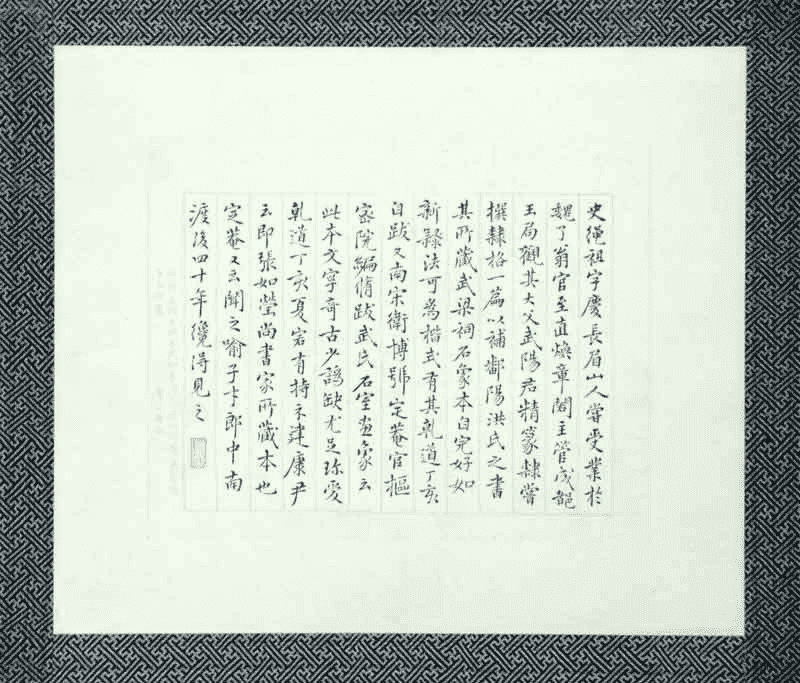 史繩祖字慶長眉山人嘗受業於
魏了翁官至直煥章閣主管成都
玉局觀其大父武陽君精篆隸嘗
撰隸格一篇以補鄱陽洪氏之書
其所藏武梁祠石象本自完好如
新隸法可為楷式有其乾道丁亥
自跋又南宋衛博號定菴官樞
密院編脩跋武氏石室畫象云
此本文字奇古少譌缺尤足珍愛
乾道丁亥夏客有持示建康尹
云即張如瑩尚書家所藏本也
定菴又云聞之喻子才郎中南
渡後四十年纔得見之